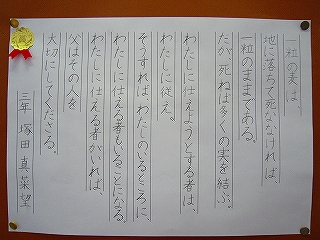 一粒の麦は、
地に落ちて死ななければ、
一粒のままである。
だが、死ねば多くの実を結ぶ。
わたしに仕えようとする者は、
わたしに従え。
そうすれば、わたしのいるところに、
わたしに仕える者もいることになる。
わたしに仕える者がいれば、
父はその人を
大切にしてくださる。
三年 塚田 真菜望